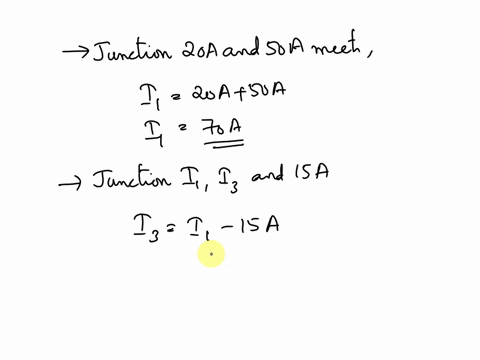 → Junction 20A and 50A meet,
I₁ = 20A + 50A
I₁ = 70A
→ Junction I₁, I₃ and 15A
I₃ = I₁ - 15A